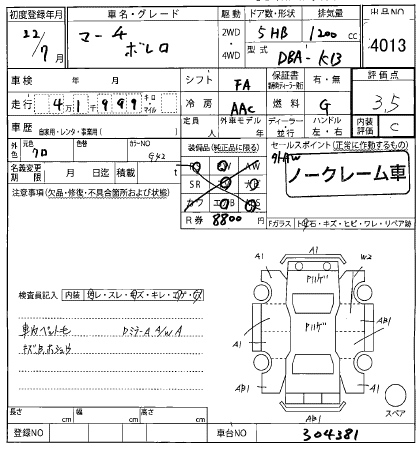 初度登録年月
車名・グレード
駆動
ドア数・形状
排気量
出品NO
22/7月
マーチ
ボレロ
2WD
4WD
5HB
1200 cc
型式
DBA-K13
4013
車検 年 月
シフト
FA
保証書
有・無
評価点
3.5
走行
4万1千999
キロ
マイル
冷房
AAC
燃料
G
車歴
自家用・レンタ・事業用( )
定員 人
外車モデル 年
ディーラー
並行
ハンドル
左・右
内装評価
C
外色
元色
クロ
色替
カラーNO
G42
装備品(純正品に限る)
セールスポイント(正常に作動するもの)
名義変更期限 月 日迄
積載 t
SR
R券 8800円
ノークレーム車
注意事項(欠品・修復・不具合箇所および状態)
Fガラス
石・キズ・ヒビ・ワレ・リペア跡
検査員記入
内装
A1
A1
W2
AB1
A1
A1
AB1
スペア
長さ cm
幅 cm
高さ cm
登録NO
車台NO
304381